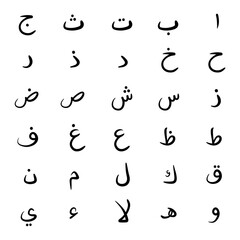 ا ب ت ث ج
ح خ د ذ ر
ز س ش ص ض
ط ظ ع غ ف
ق ك ل م ن
و هـ لا ء ي